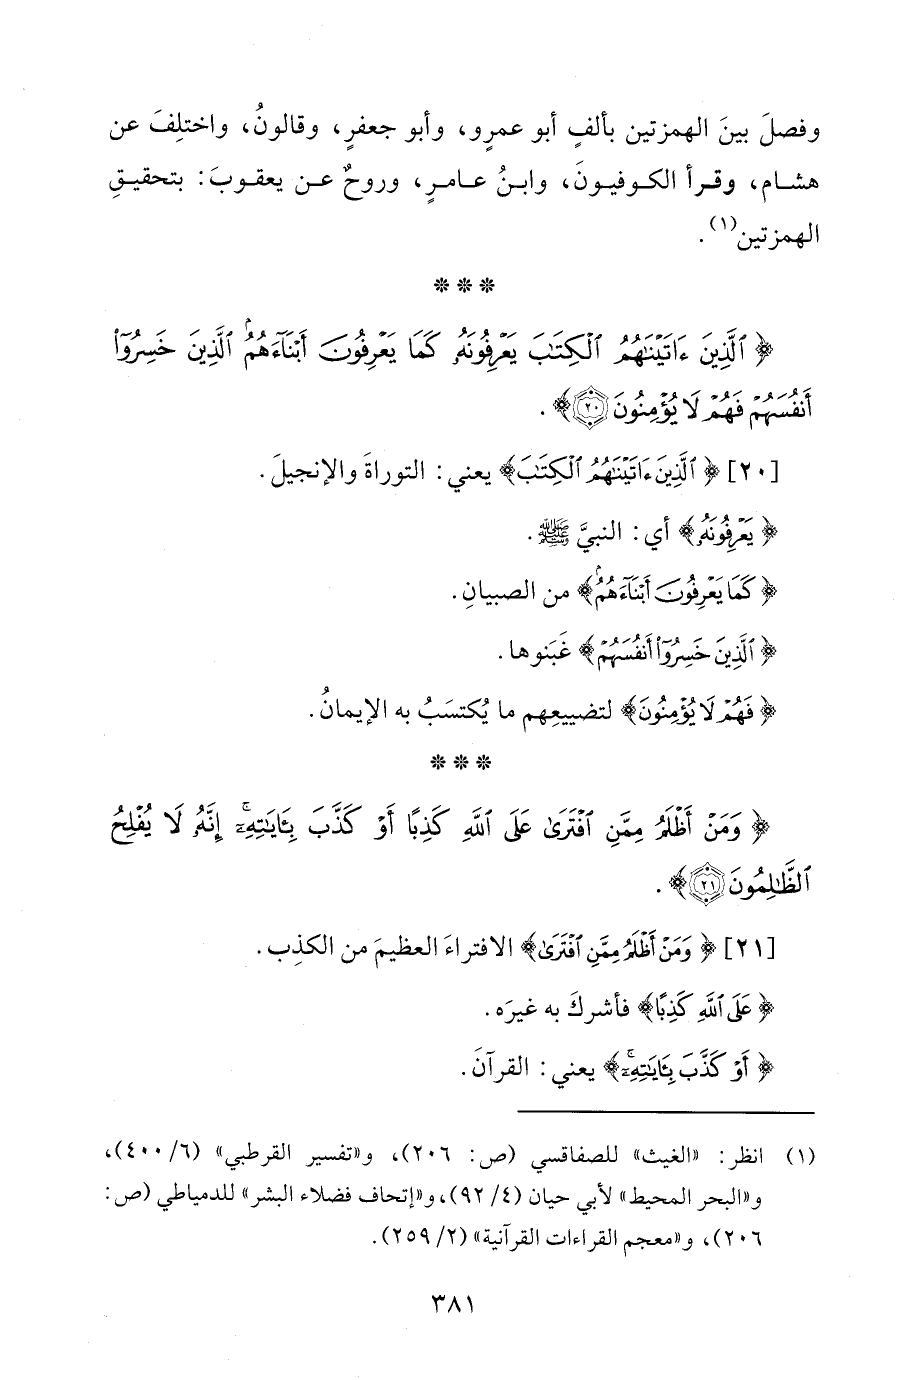 وفصلَ بينَ الهمزتين بألفٍ أبو عمرٍو، وأبو جعفرٍ، وقالونُ، واختلِفَ عن
هشام، وقرأ الكوفيونَ، وابنُ عامرٍ، وروحٌ عن يعقوبَ: بتحقيقِ
الهمزتين(١).
***
﴿ ٱلَّذِينَ ءَاتَيۡنَٰهُمُ ٱلۡكِتَٰبَ يَعۡرِفُونَهُۥ كَمَا يَعۡرِفُونَ أَبۡنَآءَهُمُۘ ٱلَّذِينَ خَسِرُوٓاْ
أَنفُسَهُمۡ فَهُمۡ لَا يُؤۡمِنُونَ ٢٠﴾.
[٢٠] ﴿ ٱلَّذِينَ ءَاتَيۡنَٰهُمُ ٱلۡكِتَٰبَ﴾ يعني: التوراةَ والإنجيلَ.
﴿ يَعۡرِفُونَهُۥ﴾ أي: النبيَّ ﷺ.
﴿ كَمَا يَعۡرِفُونَ أَبۡنَآءَهُمُۘ﴾ من الصبيانِ.
﴿ ٱلَّذِينَ خَسِرُوٓاْ أَنفُسَهُمۡ﴾ غَبَنوها.
﴿ فَهُمۡ لَا يُؤۡمِنُونَ﴾ لتضييعِهم ما يُكتسَبُ به الإيمانُ.
***
﴿ وَمَنۡ أَظۡلَمُ مِمَّنِ ٱفۡتَرَىٰ عَلَى ٱللَّهِ كَذِبًا أَوۡ كَذَّبَ بِـَٔايَٰتِهِۦٓۚ إِنَّهُۥ لَا يُفۡلِحُ
ٱلظَّٰلِمُونَ ٢١﴾.
[٢١] ﴿ وَمَنۡ أَظۡلَمُ مِمَّنِ ٱفۡتَرَىٰ﴾ الافتراءَ العظيمَ من الكذِب.
﴿ عَلَى ٱللَّهِ كَذِبًا﴾ فأشركَ به غيرَه.
﴿ أَوۡ كَذَّبَ بِـَٔايَٰتِهِۦٓۚ﴾ يعني: القرآنَ.
(١) انظر: «الغيث» للصفاقسي (ص: ٢٠٦)، و«تفسير القرطبي» (٦/ ٤٠٠)،
و«البحر المحيط» لأبي حيان (٤/ ٩٢)، و«إتحاف فضلاء البشر» للدمياطي (ص:
٢٠٦)، و«معجم القراءات القرآنية» (٢/ ٢٥٩).
٣٨١